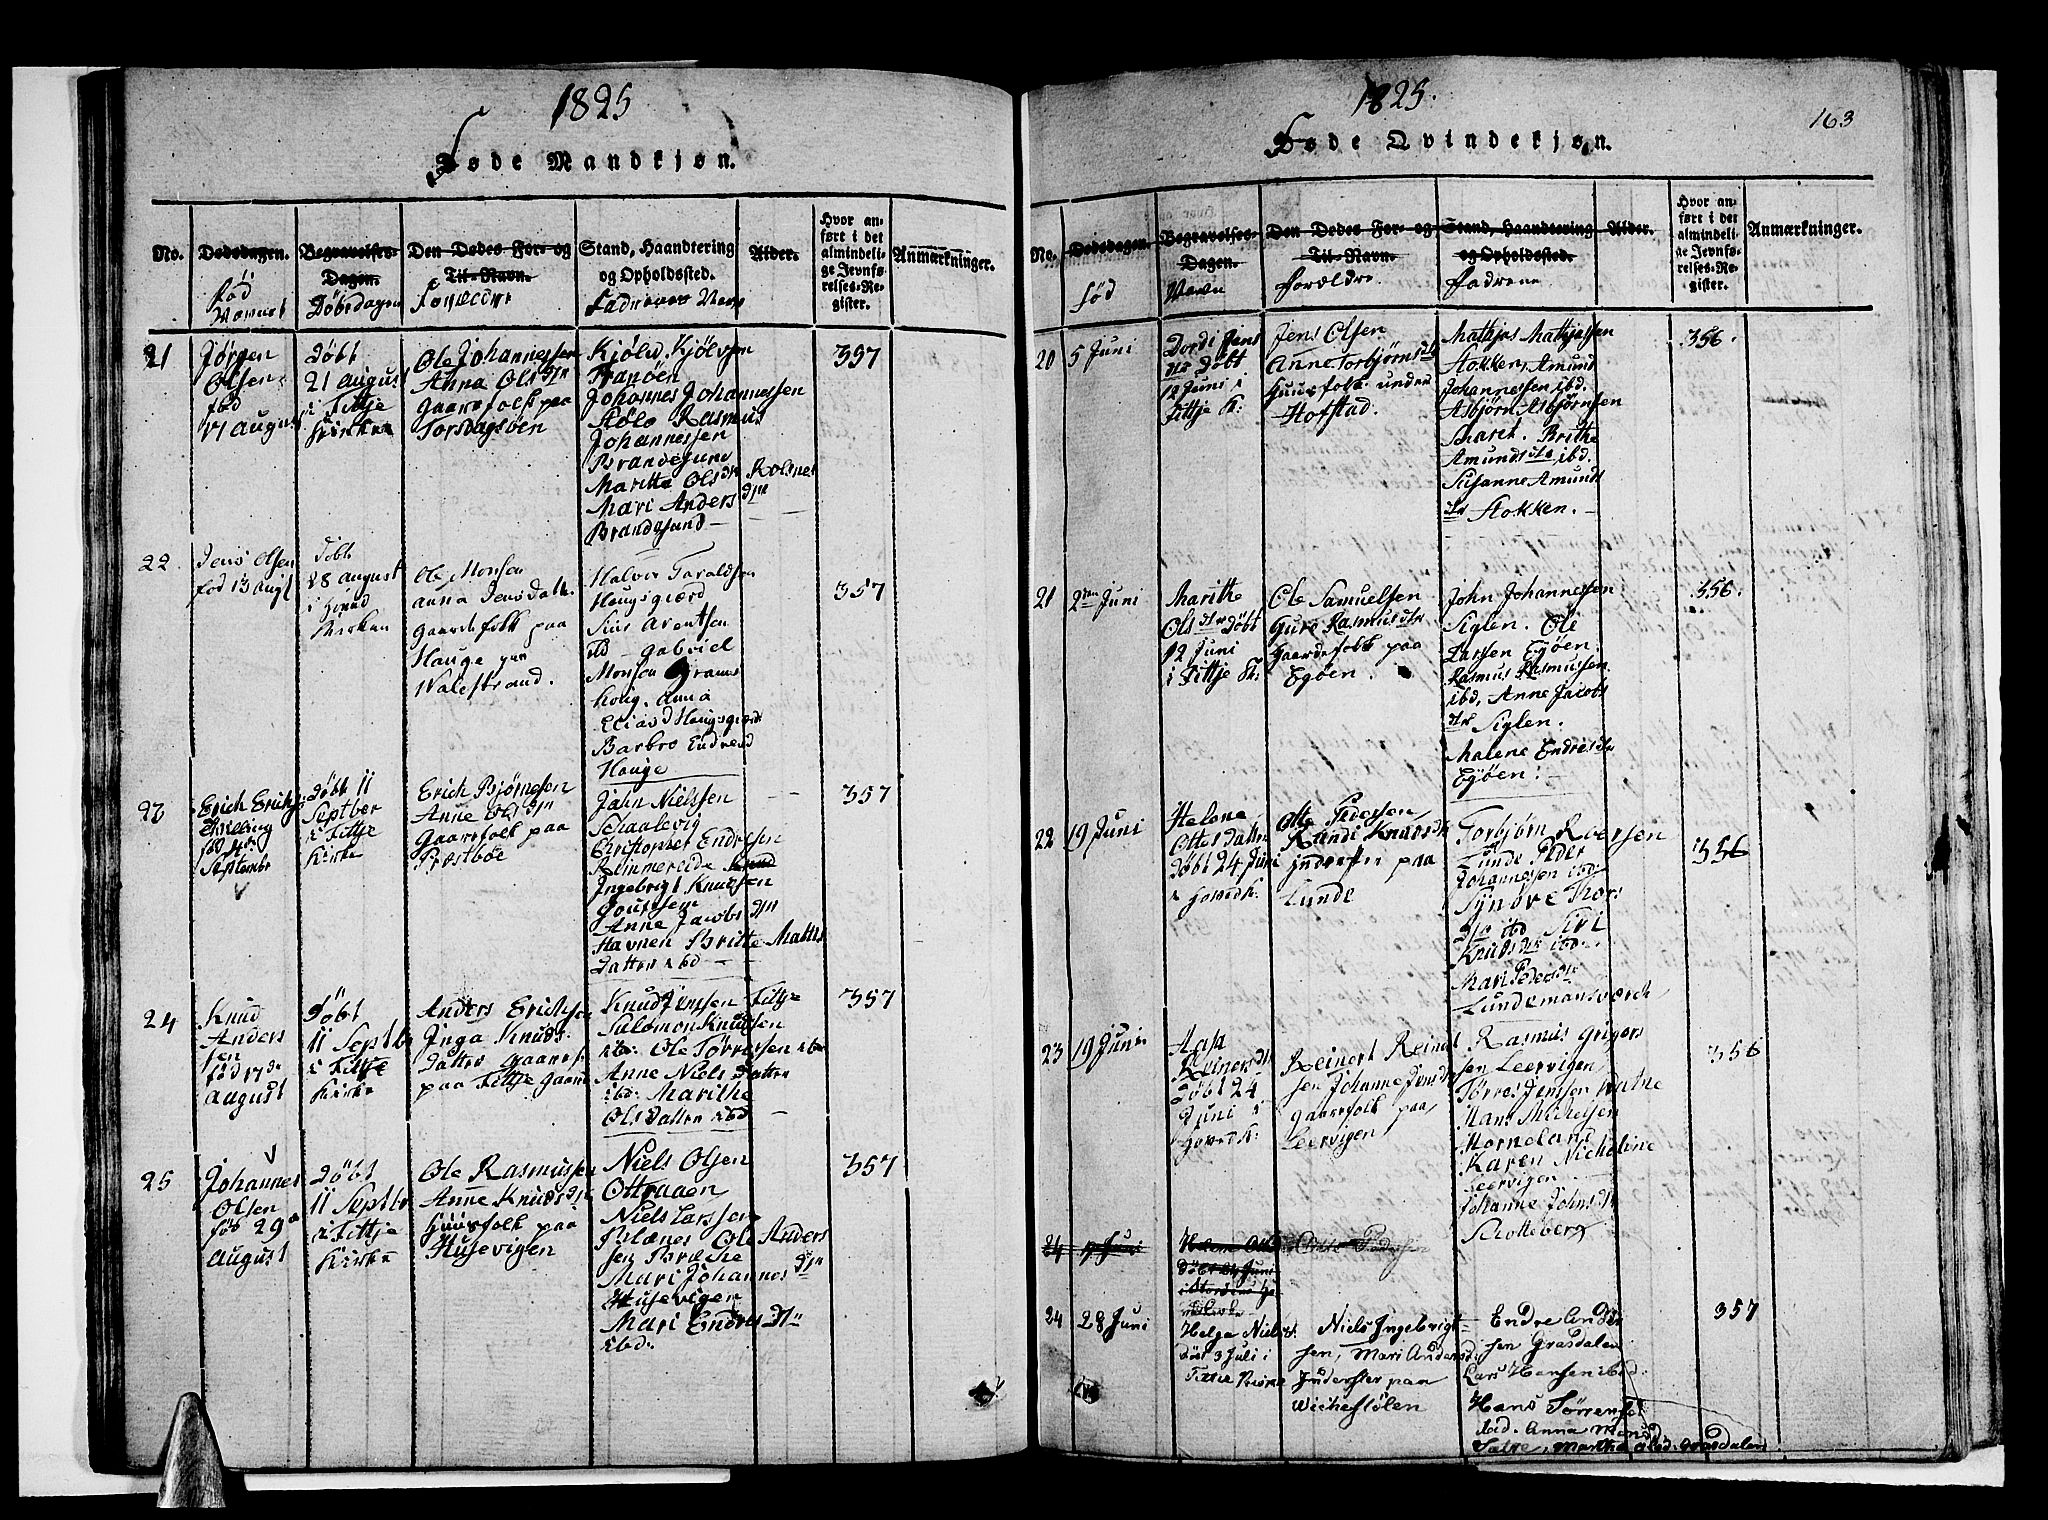 1825
Føde Mandkjøn.
No.
Dødsdagen.
Begravelses-
Dagen.
Den Dødes For- og
Til-Navn.
Stand, Haandtering
og Opholdssted.
Alder.
Hvor an-
ført i det
almindeli-
ge Jevnfø-
relses-Re-
gister.
Anmærkninger.
fød
Døbedagen
Forældre
21
Jørgen
Olsen
fød
17 August
Døbt
21 August
i Fittje
Kirke
Ole Johannessen
Anna Olsdtr
Gaardfolk paa
Torsdagsøen
Kjøld Kjølvsen
Tranøen
Johannes Johannessen
Rasmus
Johannessen
Brandesund
Maritta Olsdtr Rolsnes
Mari Anders dtr
Brandesund
357
22
Jens Olsen
fød 13 Augt
Døbt
28 August
i
Kirken
Ole Monsen
Anna Jensdatr.
Gaardefolk paa
Hauge
Walestrand.
Halvor Taraldsen
Haugsgierd
Siur Arentsen
ibd - Gabriel
Monsen Grams
holig. Anna
Eliasd Haugsgierd
Barbro Endresd
Hauge
357
23
Erich Erichs:
fød 4de
September
Døbt 11
Septber
i Fittje
Kirke
Erich Bjørnesen
Anne Olsdtr
Gaarfolk paa
Præstbøe
Jahn Nielssen
Schaalevig
Christopher Endresen
Rimmereide
Ingebrigt Knudsen
Anne Jacobsdtr
Havnen Britte Mattis
Datter ibd
357
24
Knud
Anders
sen
fød 17de
August
Døbt
11 Septbr
i Fittje
Kirke
Anders Erichsen
Inga Knuds
Datter Gaardf
paa Fittje Gaard
Knud Jenssen Fittje
Salomon Knudsen
ibd: Ole Tørresen ibd
Anne Niels Datter
ibd: Marithe
Ols Datter ibd
357
25
Johannes
Olsen
fød 29
August
Døbt
11 Septbr
i Fittje
Kirke
Ole Rasmussen
Anne Knudsdtr
Huusfolk paa
Husevigen
Niels Olsen
Niels Larssen
Ole Anders
sen
Mari Johannesdtr
Husevigen
Mari Endresdtr
ibd:
357
1825.
163
Føde Qvindekjøn.
No.
Dødsdagen.
Begravelses-
Dagen.
Den Dødes For- og
Til-Navn.
Stand, Haandtering
og Opholdssted.
Alder.
Hvor an-
ført i det
almindeli-
ge Jevnfø-
relses-Re-
gister.
Anmærkninger.
fød
Navn
Forældre
Fadrene
20
5 Juni
Dordi Jens
dtr Døbt
12 Juni i
Fittje K:
Jens Olsen
Anne Torbjørnsdtr
Huusfolk under
Hofstad.
Mathias Mathjassen
Stokken, Amund
Johannessen ibd.
Asbjørn Asbjørnsen
Brithe
Amundsdtr ibd.
Susanne Amunds
dtr Stokken.
356.
21
2den Juni
Marithe
Olsdtr Døbt
12 Juni
i Fittje K:
Ole Samuelsen
Gure Rasmusdtr
Gaardefolk paa
Egøen.
John Johannessen
Siglen. Ole
Larssen Egøen.
Rasmus Rasmussen
ibd, Anne Jacobs
dtr Siglen.
Malene Endresdtr
Egøen.
356.
22
19 Juni
Helene
Ottes Datter
Døbt 24 Juni
i Hovedk.
Otte Pedersen,
Randi Knudsdtr
Inderster paa
Lunde
Torbjørn Roersen
Lunde Peder
Johannessen ibd
Synøve Thors
dtr ibd Siri
Knudsdtr ibd:
Mari Pedersdtr
Lundemansværch
356
23
19 Juni
Aasa
Reinersdtr
Døbt 24
Juni i
Hovedk:
Reinert Reinert
sen Johanne Jensdtr
Gaardfolk paa
Leervigen
Rasmus Grigors
sen Leervigen
Tørres Jenssen Vatne
Hans Michelsen
Horneland
Karen Nicholine
Leervigen
Johanne Johnsdtr
Schotteberg
356
24
Helene Otts
Døbt 24 Juni
Otto Pedersen
24
28 Juni
Helga Nielsd.
Døbt 3 Juli i
Fittie Kirke
Niels Ingebrigt
sen, Mari Andersd
Inderster paa
Wichestølen
Endre Ander
sen Grøsdalen
Lars Hansen ibd:
Hans Tørresen
ibd. Anna
Sætre, Martha Olsd. Grøsdalen
357